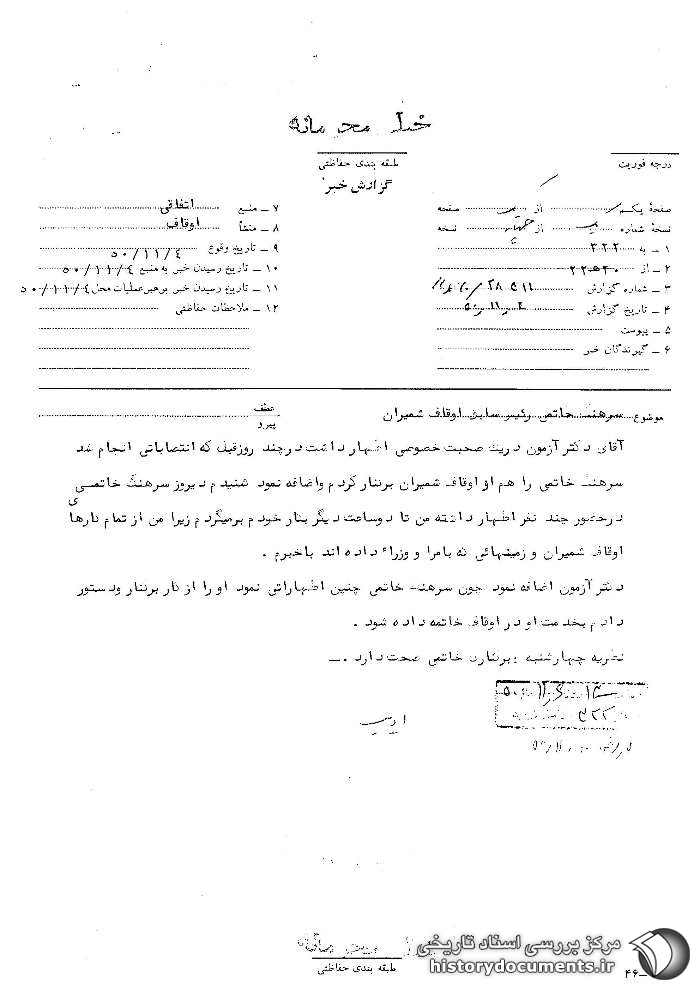 خیلی محرمانه
درجه فوریت
طبقه بندی حفاظتی
گزارش خبر
صفحهٔ یکم از یک صفحه
نسخهٔ شماره از نسخه
۱ ـ به ۳۲۲
۲ ـ از
۳ ـ شماره گزارش
۴ ـ تاریخ گزارش
۵ ـ پیوست
۶ ـ گیرندگان خبر
۷ ـ منبع اتفاقی
۸ ـ منشأ اوقاف
۹ ـ تاریخ وقوع ۵۰/۱۱/۴
۱۰ ـ تاریخ رسیدن خبر به منبع ۵۰/۱۱/۴
۱۱ ـ تاریخ رسیدن خبر برهبر عملیات محل ۵۰/۱۱/۴
۱۲ ـ ملاحظات حفاظتی
موضوع سرهنگ خاتمی رئیس سابق اوقاف شمیران
عطف
پیرو
آقای دکتر آزمون در یک صحبت خصوصی اظهار داشت در چند روز قبل که انتصاباتی انجام شد
سرهنگ خاتمی را هم از اوقاف شمیران برکنار کردم واضافه نمود شنیدم دیروز سرهنگ خاتمی
درحضور چند نفر اظهار داشته من تا دوساعت دیگر بکار خودم برمیگردم زیرا من از تمام کارهای
اوقاف شمیران و زمینهائی که بامرا و وزراء داده اند باخبرم .
دکتر آزمون اضافه نمود چون سرهنگ خاتمی چنین اظهاراتی نمود او را از کار برکنار ودستور
دادم بخدمت او در اوقاف خاتمه داده شود .
نظریه چهارشنبه : برکناری خاتمی صحت دارد .ـ
خیلی محرمانه
طبقه بندی حفاظتی
۴۶ـ
مرکز بررسی اسناد تاریخی
historydocuments.ir